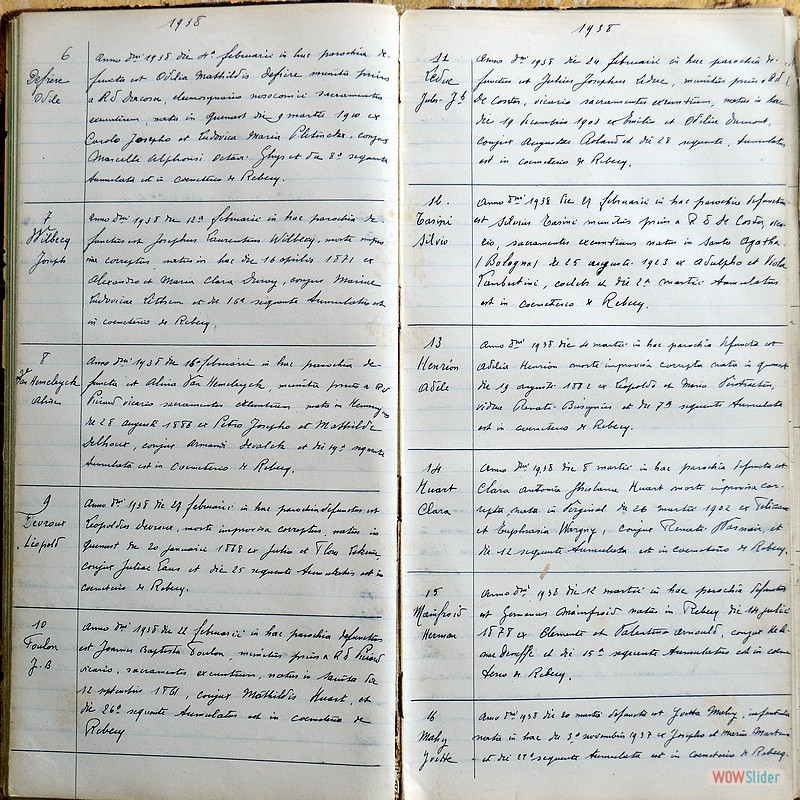 1938
6
Defière
Odile
Anno dni 1938 die 4a februarii in hac parochia de-
functa est Odilia Mathildis Defière munita prius
a Rd Diacosa, eleemosynario nosocomii sacramentis
exeuntium nata in Quenast die 9 martii 1910 ex
Carolo Josepho et Ludovica Maria Pletinckx, conjux
Marcelli Alphonsi Octavi Ghys et die 8a sequente
humulata est in coemeterio de Rebecq.
7
Wilbecq
Joseph
Anno dni 1938 die 12a februarii in hac parochia de-
functus est Josephus Laurentius Wilbecq, morte impro
visa correptus, natus in hac die 16 aprilis 1871 ex
Alexandro et Maria Clara conjux Mariae
Ludovicae et die 16a sequente humulatus est
in coemeterio de Rebecq.
8
Van Hemelryck
Alina
Anno dni 1938 die 16a februarii in hac parochia de-
functa est Alina Van Hemelryck, munita prius a Rd
Picard vicario sacramentis exeuntium, nata in
die 28 augusti 1886 ex Petro Josepho et Mathilde
Delhoux, conjux Armandi Devalck et die 19a sequente
humulata est in coemeterio de Rebecq.
9
Devroux
Léopold
Anno dni 1938 die 21 februarii in hac parochia defunctus est
Leopoldus Devroux, morte improvisa correptus, natus in
Quenast die 20 januarii 1868 ex Julio et
conjux Juliae et die 25 sequente humulatus est in
coemeterio de Rebecq.
10
Toulon
J. B
Anno dni 1938 die 22 februarii in hac parochia defunctus
est Joannes Baptista Toulon, munitus prius a Rd Picard
vicario, sacramentis exeuntium, natus in
12 septembris 1861, conjux Mathildis Huart, et
die 26a sequente humulatus est in coemeterio de
Rebecq
1938
11
Leduc
Jules Jh
Anno dni 1938 die 24 februarii in hac parochia de-
functus est Julius Josephus Leduc, munitus prius a Rd
De Coster, vicario sacramentis exeuntium, natus in hac
die 19 decembris 1903 ex Emilio et Odilia Dumont,
conjux Augustae Roland et die 28 sequente, humulatus
est in coemeterio de Rebecq.
12.
Tasini
Silvio
Anno dni 1938 die 27 februarii in hac parochia defunctus
est Silvius Tasini munitus prius a R D De Coster, vica
rio, sacramentis exeuntium natus in Santa Agatha
(Bologna) die 25 augusti 1923 ex Adulpho et Viola
Lambertini, coelebs et die 2a martii humulatus
est in coemeterio de Rebecq.
13
Henrion
Adèle
Anno dni 1938 die 4 martii in hac parochia defuncta est
Adelia Henrion morte improvisa correpta nata in Quenast
die 19 augusti 1882 ex Leopoldo et Maria
vidua Renati Bisqueries et die 7a sequente humulata
est in coemeterio de Rebecq.
14
Huart
Clara
Anno dni 1938 die 8 martii in hac parochia defuncta est
Clara Antonia Ghislana Huart morte improvisa cor-
repta nata in Virginal die 26 martii 1902 ex Feliciano
et Euphrasia Wargny, conjux Renati Hasnair, et
die 12 sequente humulata est in coemeterio de Rebecq.
15
Mainfroid
Herman
Anno dni 1938 die 12 martii in hac parochia defunctus
est Germanus Mainfroid natus in Rebecq die 14 julii
1878 ex Clemente et Valentina Arnould, conjux
et die 15a sequente humulatus est in coeme
terio de Rebecq.
16
Mahy
Yvette
Anno dni 1938 die 20 martii defuncta est Yvetta Mahy, infantula
nata in hac die 3a novembris 1937 ex Josepho et Maria Martens
et die 22a sequente humulata est in coemeterio de Rebecq.
WOWSlider